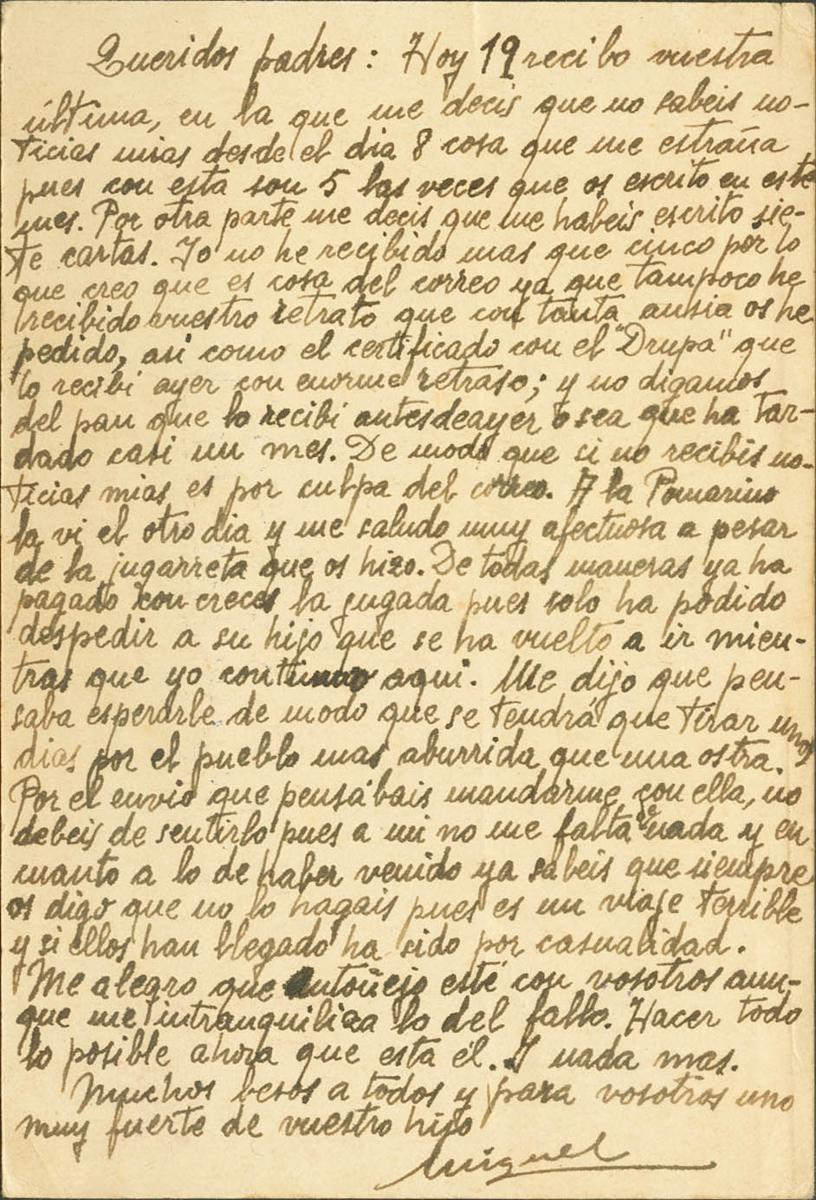 Queridos padres: Hoy 19 recibo vuestra
última, en la que me decis que no sabeis no-
ticias mias desde el dia 8 cosa que me estraña
pues con esta son 5 las veces que os escrito en este
mes. Por otra parte me decis que me habeis escrito sie-
te cartas. Yo no he recibido mas que cinco por lo
que creo que es cosa del correo ya que tampoco he
recibido vuestro retrato que con tanta ansia os he
pedido, asi como el certificado con el "Drupa" que
lo recibi ayer con enorme retraso; y no digamos
del pan que lo recibi antesdeayer o sea que ha tar-
dado casi un mes. De modo que si no recibis no-
ticias mias es por culpa del correo. A la Pomarino
la vi el otro dia y me saludo muy afectuosa a pesar
de la jugarreta que os hizo. De todas maneras ya ha
pagado con creces la jugada pues solo ha podido
despedir a su hijo que se ha vuelto a ir mien-
tras que yo continuo aqui. Me dijo que pen-
saba esperarle de modo que se tendrá que tirar unos
dias por el pueblo mas aburrida que una ostra.
Por el envio que pensábais mandarme con ella, no
debeis de sentirlo pues a mi no me falta de nada y en
cuanto a lo de haber venido ya sabeis que siempre
os digo que no lo hagais pues es un viaje terrible
y si ellos han llegado ha sido por casualidad.
Me alegro que Antoñejo esté con vosotros aun-
que me intranquiliza lo del fallo. Hacer todo
lo posible ahora que esta él. Y nada mas.
Muchos besos a todos y para vosotros uno
muy fuerte de vuestro hijo
Miguel